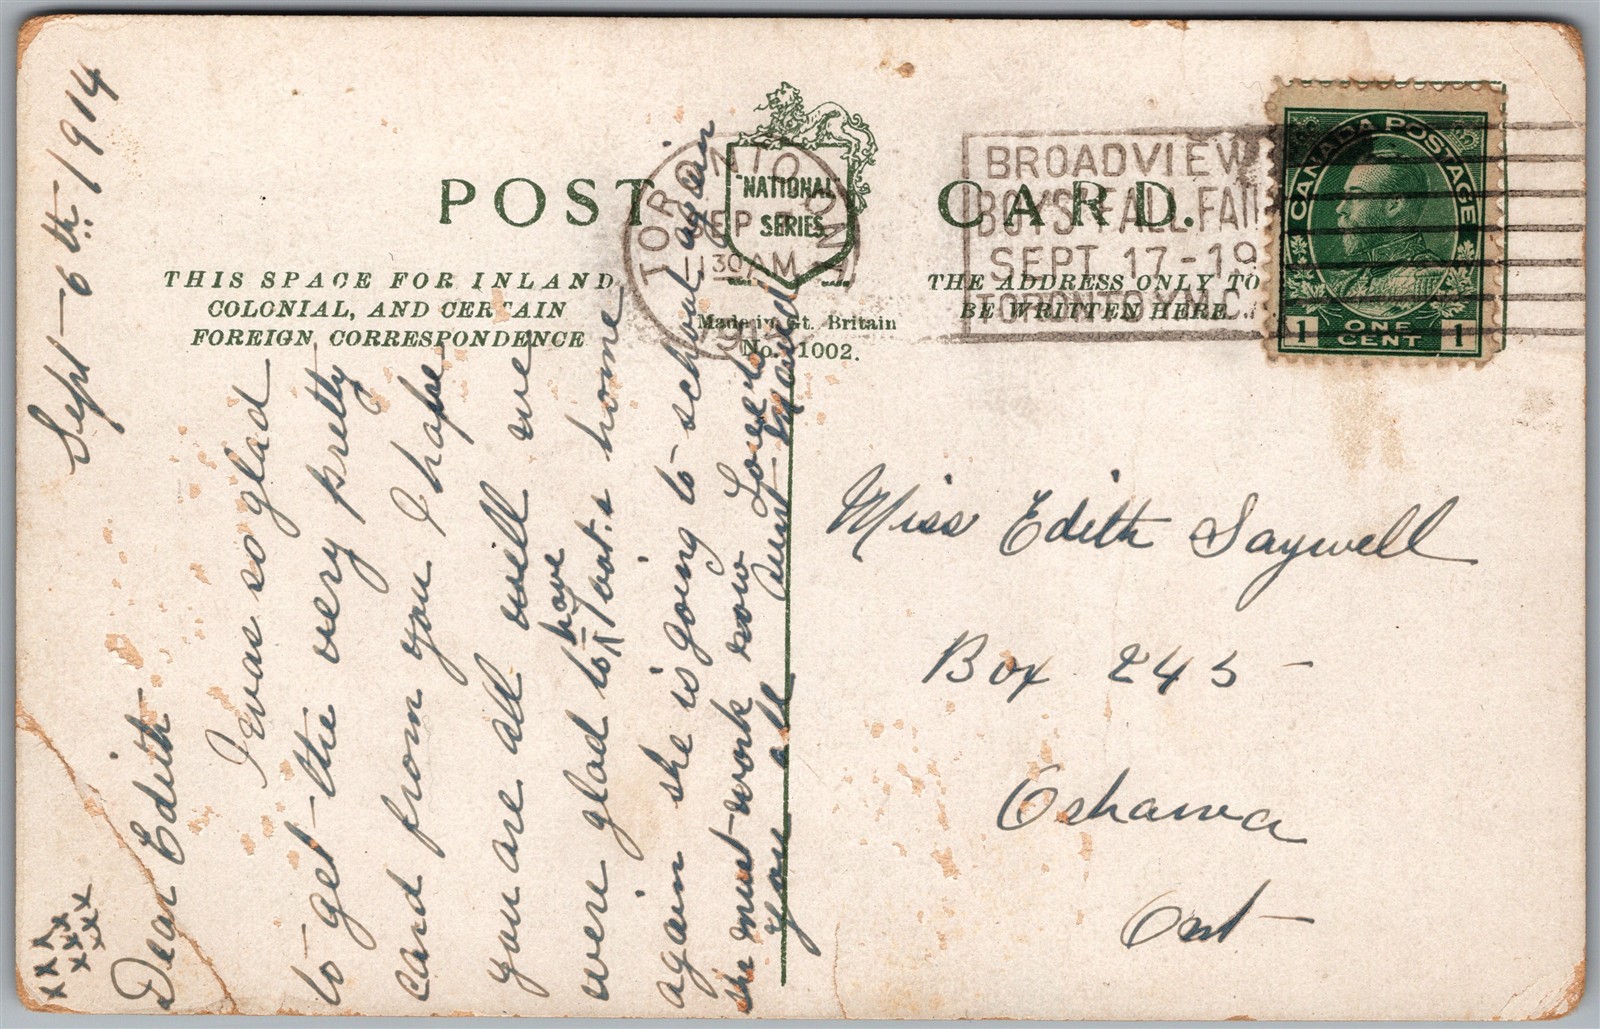 POST CARD.
"NATIONAL"
SERIES
THIS SPACE FOR INLAND
COLONIAL, AND CERTAIN
FOREIGN CORRESPONDENCE
Made in Gt. Britain
No. 1002.
THE ADDRESS ONLY TO
BE WRITTEN HERE
TORONTO ONT
SEP
11 30 AM
BROADVIEW
BOYS' FALL FAIR
SEPT. 17-19
TORONTO Y.M.C.A.
CANADA POSTAGE
1 ONE CENT 1
Sept - 6th 1914
Dear Edith
I was so glad
to get the very pretty
card from you I hope
you are all well we
were glad to have home
again she is going to school again
she must work now Love to
you all Aunt Maud
xxx
xxx
xxx
Miss Edith Saywell
Box 245
Oshawa
Ont